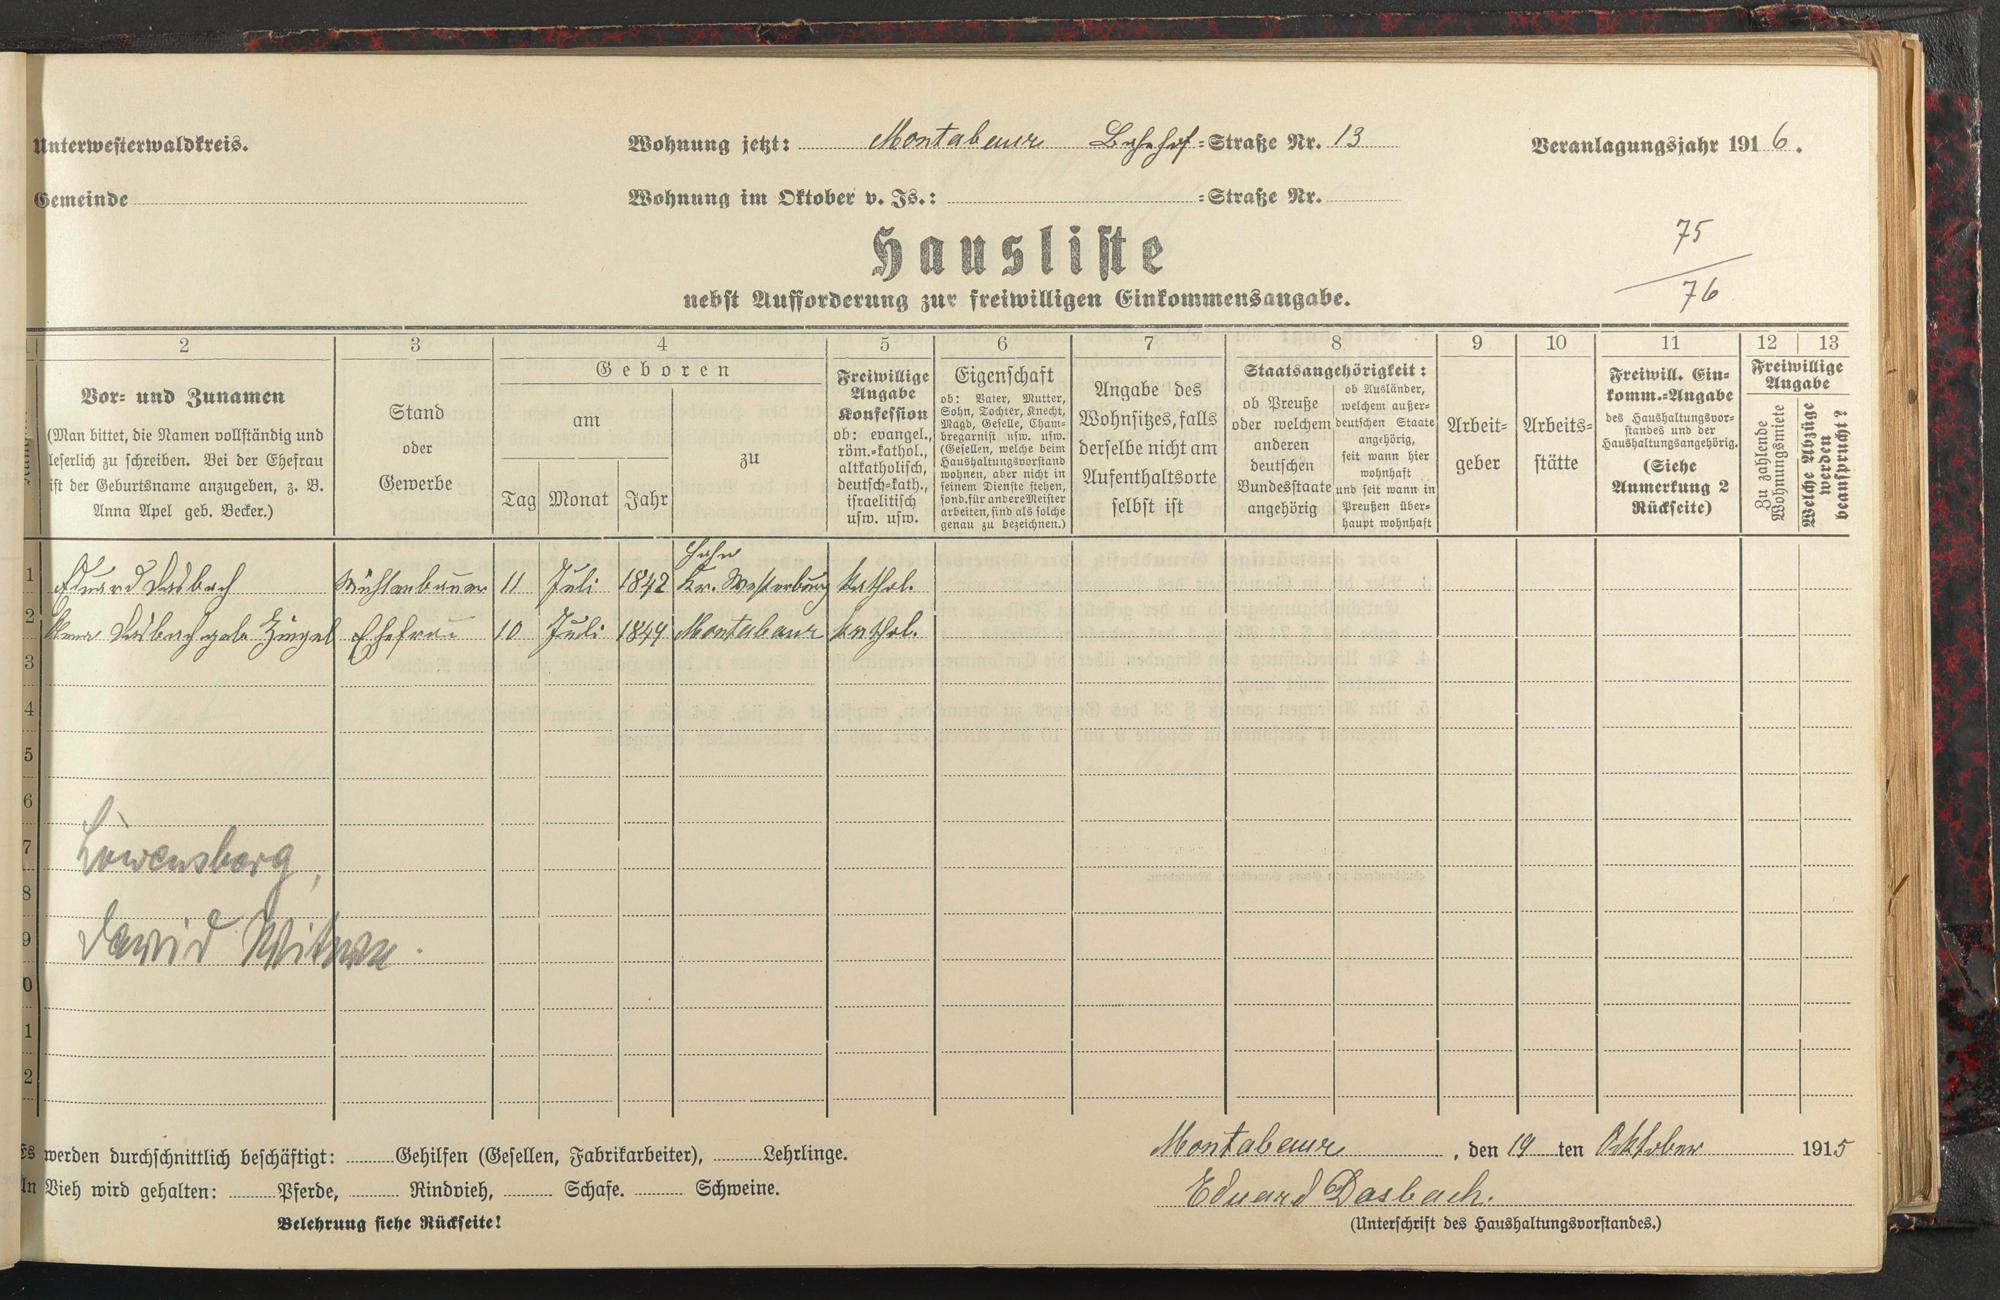 Unterwesterwaldkreis.
Wohnung jetzt: Montabaur Bahnhof-Straße Nr. 13
Veranlagungsjahr 1916.
Gemeinde
Wohnung im Oktober v. Js.: -Straße Nr.
75
76
Hausliste
nebst Aufforderung zur freiwilligen Einkommensangabe.
2 3 4 5 6 7 8 9 10 11 12 13
Vor- und Zunamen
(Man bittet, die Namen vollständig und
leserlich zu schreiben. Bei der Ehefrau
ist der Geburtsname anzugeben, z. B.
Anna Apel geb. Becker.)
Stand
oder
Gewerbe
Geboren
am
Tag Monat Jahr
zu
Freiwillige
Angabe
Konfession
ob: evangel.,
röm.-kathol.,
altkatholisch,
deutsch-kath.,
israelitisch
usw. usw.
Eigenschaft
ob: Vater, Mutter,
Sohn, Tochter, Knecht,
Magd, Geselle, Cham-
bregarnist usw. usw.
(Gesellen, welche beim
Haushaltungsvorstand
wohnen, aber nicht in
seinem Dienste stehen,
sond. für andere Meister
arbeiten, sind als solche
genau zu bezeichnen.)
Angabe des
Wohnsitzes, falls
derselbe nicht am
Aufenthaltsorte
selbst ist
Staatsangehörigkeit:
ob Preuße
oder welchem
anderen
deutschen
Bundesstaate
angehörig
ob Ausländer,
welchem außer-
deutschen Staate
angehörig,
seit wann hier
wohnhaft
und seit wann in
Preußen über-
haupt wohnhaft
Arbeit-
geber
Arbeits-
stätte
Freiwill. Ein-
komm.-Angabe
des Haushaltungsvor-
standes und der
Haushaltungsangehörig.
(Siehe
Anmerkung 2
Rückseite)
Freiwillige
Angabe
Zu zahlende
Wohnungsmiete
Welche Abzüge
werden
beansprucht?
1 Eduard Dasbach Mühlenbauer 11 Juli 1842 Hahn
Kr. Westerburg kathol.
2 Dasbach geb. Zingel Ehefrau 10 Juli 1844 Montabaur kathol.
3
4
5
6
7 Löwensberg,
8
9 David Witwe.
0
1
2
Es werden durchschnittlich beschäftigt: Gehilfen (Gesellen, Fabrikarbeiter), Lehrlinge.
An Vieh wird gehalten: Pferde, Rindvieh, Schafe. Schweine.
Belehrung siehe Rückseite!
Montabaur, den 19 ten Oktober 1915
Eduard Dasbach.
(Unterschrift des Haushaltungsvorstandes.)